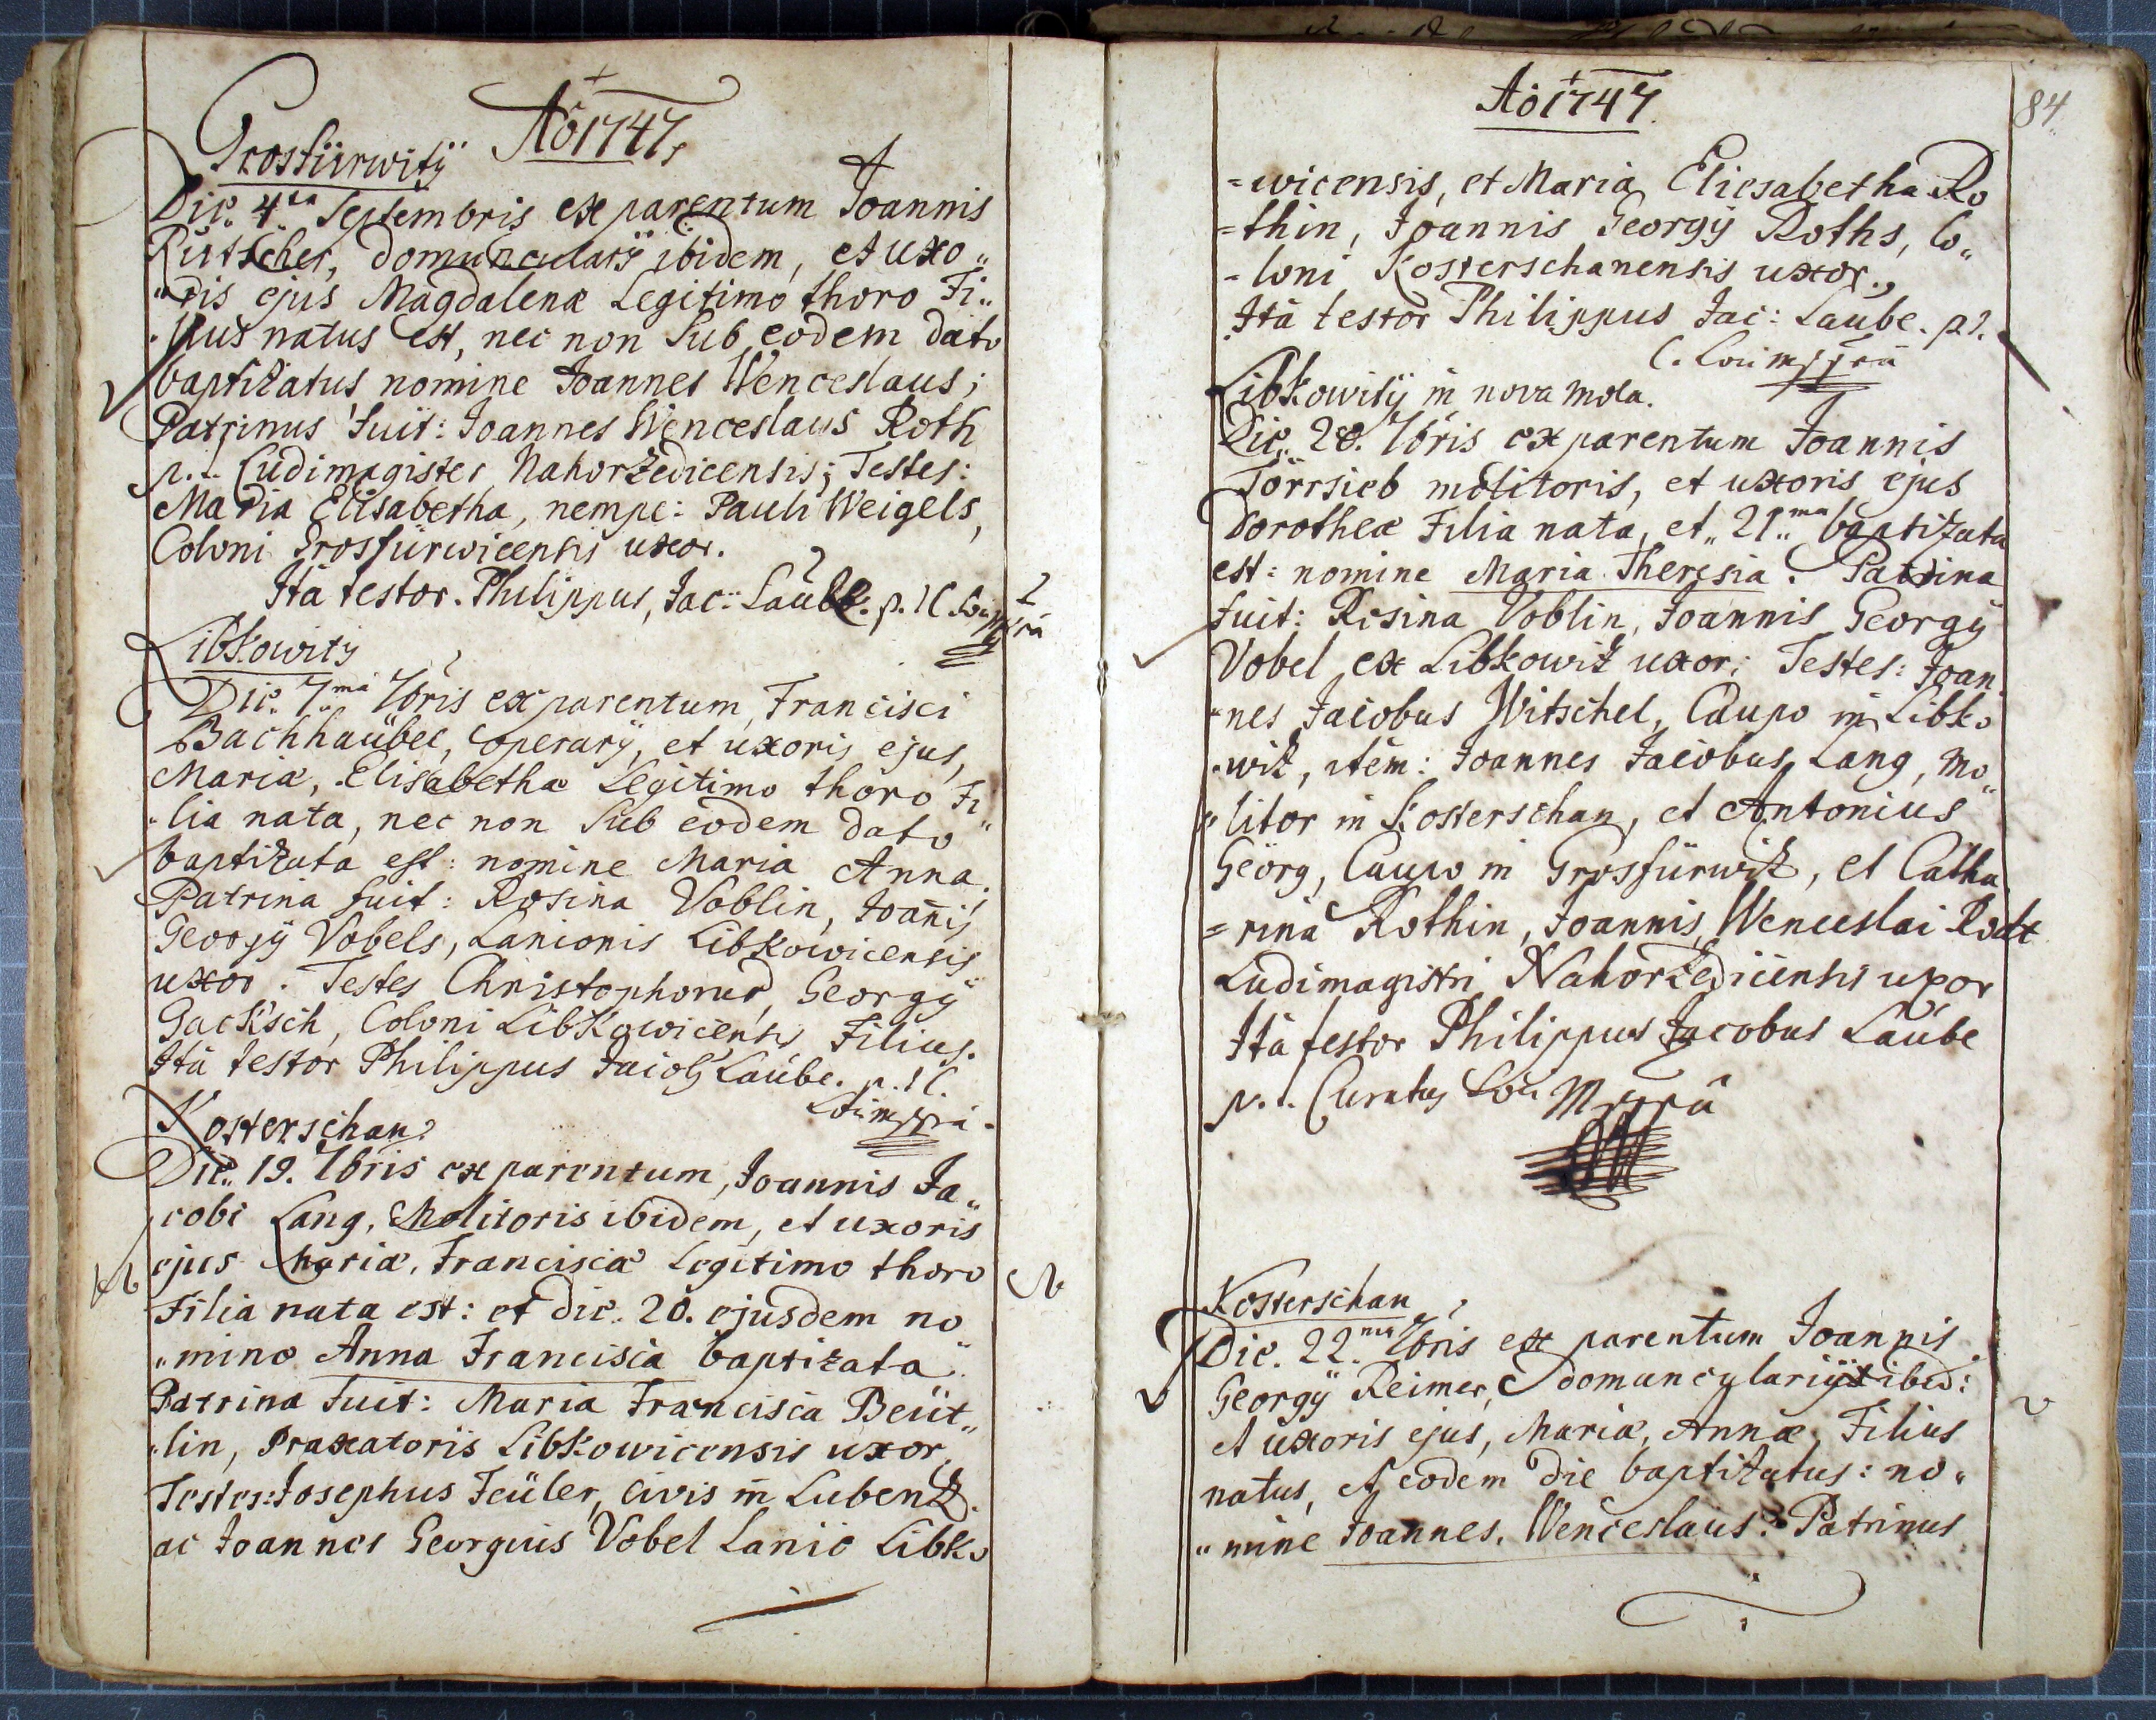 Aö 1747
Grosfürwitz
Die 4ta Septembris ex parentum Joannis
Rütscher, domuncularÿ ibidem, et uxo„
„ris ejus Magdalenæ Legitimo thoro Fi„
„lius natus est, nec non Sub eodem dato
baptizatus nomine Joannes Wenceslaus;
Patrinus fuit: Joannes Wenceslaus Roth
p.t. Ludimagister Nahorzedicensis; Testes:
Maria Elisabetha, nempe: Pauli Weigels,
Coloni Grosfürwicensis uxor.
Ità testor. Philippus, Jac: Laübe. p. t. C. Loci mppria
Libkowitz
Die 7.ma 7bris ex parentum, Francisci
Bachhaüber, operarÿ, et uxoris ejus,
Mariæ, Elisabethæ Legitimo thoro Fi„
„lia nata, nec non Sub eodem dato
baptizata est: nomine Maria Anna;
Patrina fuit: Rosina Voblin, Joanis
Georgÿ Vobels, Lanionis Libkowicensis
uxor. Testes Christophorus, Georgÿ
Gacksch, Coloni Libkowicensis Filius.
Ità testor Philippus Jacob Laübe. p. t. C.
Loci mppria.
Kosterschan
Die 19. 7bris ex parentum, Joannis Ja„
cobi Lang, Molitoris ibidem, et uxoris
ejus Mariæ, Franciscæ Legitimo thoro
Filia nata est: et die 20. ejusdem no„
„mine Anna Francisca baptizata.
Patrina fuit: Maria Francisca Beüt„
„lin, Praxatoris Libkowicensis uxor,
Testes: Josephus Feüler, Civis in Lubentz.
ac Joannes Georgius Vobel Lanio Libko
Aö 1747.
84
=wicensis, et Maria Eliesabetha Ro
=thin, Joannis Georgÿ Roths, Co„
=loni Kosterschanensis uxor.,
Ità testor Philippus Jac: Laübe. p.t.
C. Loci mppria
Libkowitz in nova mola.
Die 20. 7bris ex parentum Joannis
Törrsieb molitoris, et uxoris ejus
Dorotheæ Filia nata, et 21ma baptizata
est: nomine Maria Theresia. Patrina
fuit: Rosina Voblin, Joannis Georgÿ
Vobel ex Libkowitz uxor; Testes: Joan
„nes Jacobus Witschel, Caupo in Libko
„witz, item: Joannes Jacobus Lang, mo„
„litor in Kosterschan, et Antonius
Geörg, Caupo in Grosfürwitz, et Catha
=rina Rothin, Joannis Wenceslai Roth
Ludimagistri Nahorzedicensis uxor
Ità testor Philippus Jacobus Laübe
p.t. Curatus Loci Mppria
Kosterschan
Die 22.ma 7bris ex parentum Joannis
Georgÿ Reimer, domuncularÿ ibid:
et uxoris ejus, Mariæ, Annæ, Filius
natus, et eodem die baptizatus: no„
„mine Joannes. Wenceslaus: Patrinus